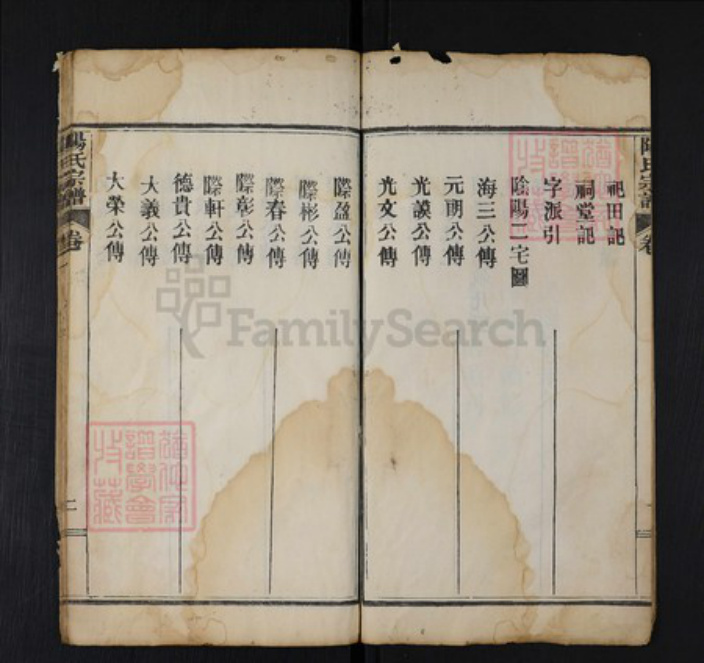 祀田記
祠堂記
字派引
陰陽二宅圖
海三公傳
元朗公傳
光謨公傳
光文公傳
際盈公傳
際彬公傳
際春公傳
際彰公傳
際軒公傳
德貴公傳
大義公傳
大榮公傳
陽氏宗譜
卷一
二
FamilySearch